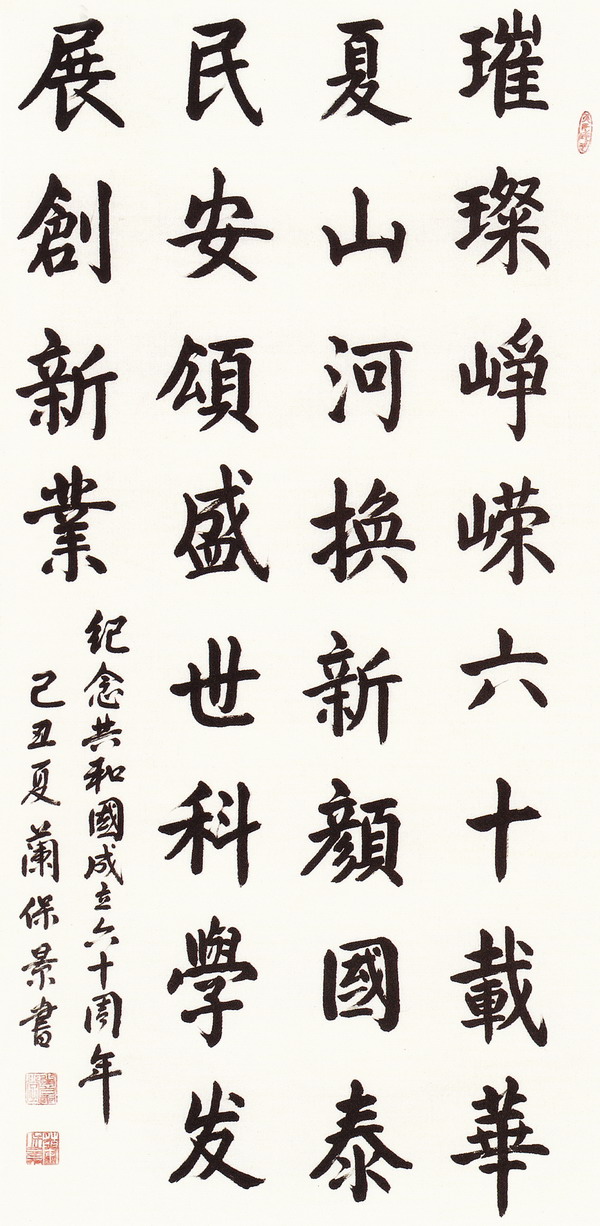 璀璨崢嶸六十載華
夏山河换新顏國泰
民安頌盛世科學发
展創新業
紀念共和國成立六十周年
己丑夏蘭保景書